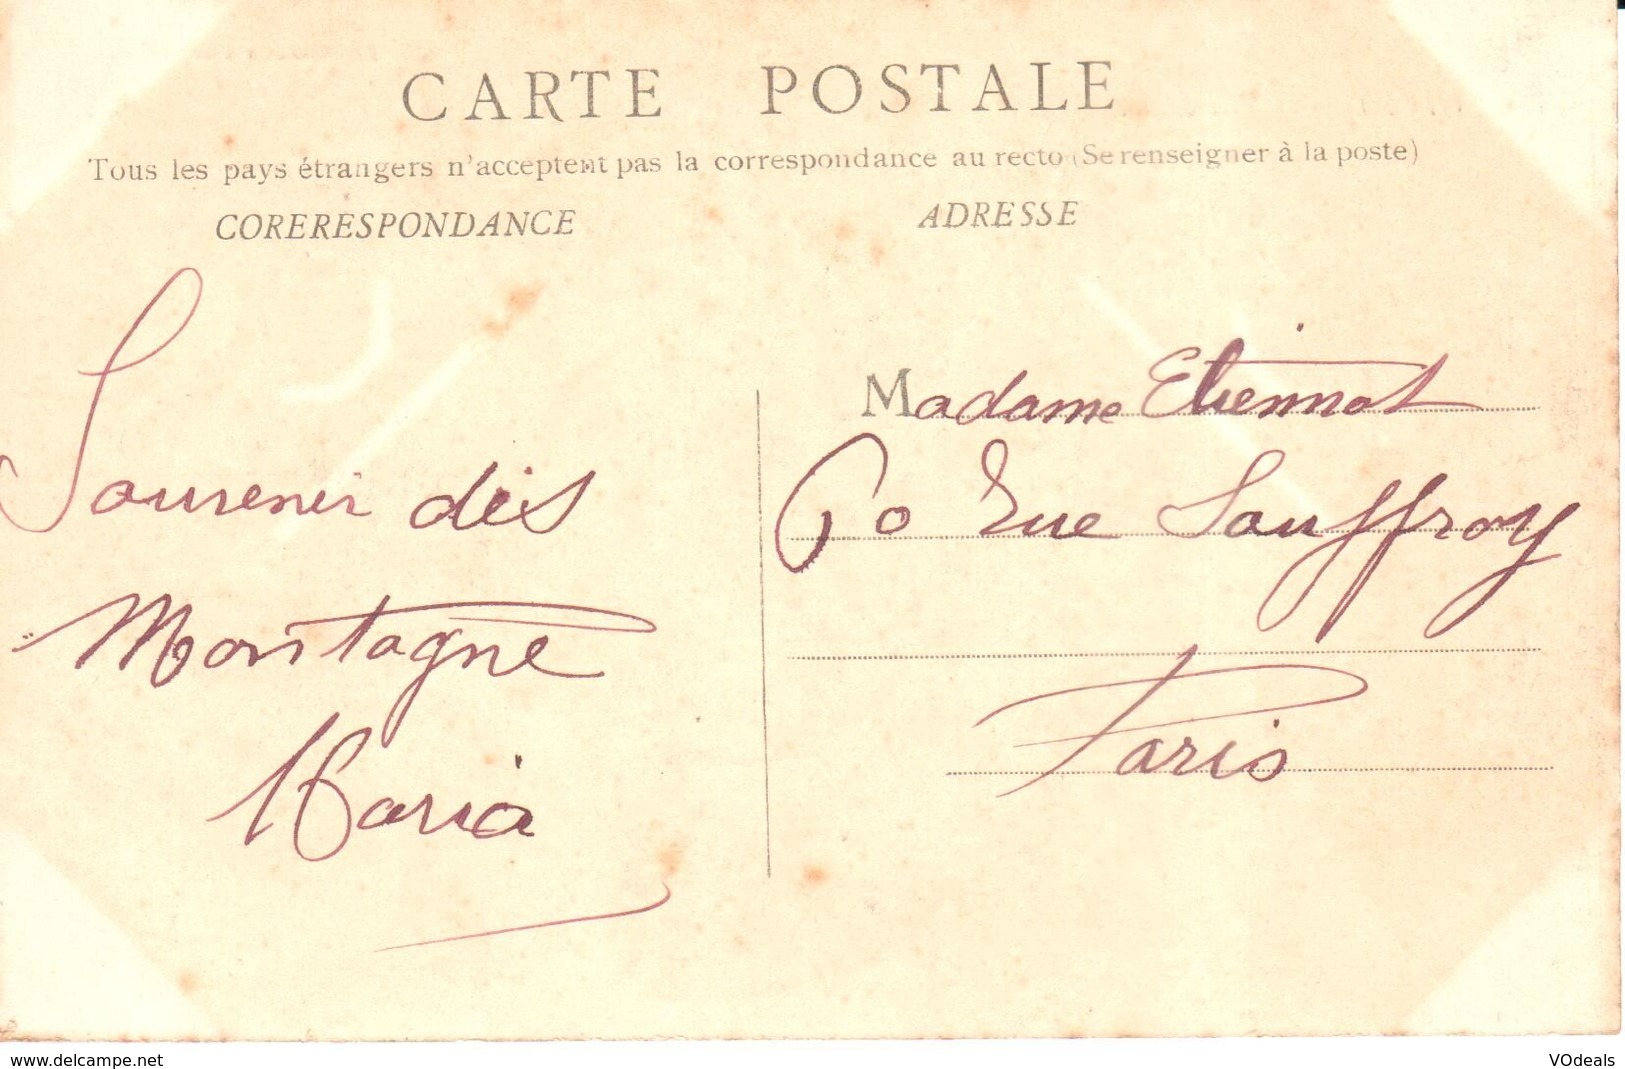 CARTE POSTALE
Tous les pays étrangers n'acceptent pas la correspondance au recto (Se renseigner à la poste)
CORERESPONDANCE
ADRESSE
Souvenir des
Montagne
Maria
Madame Etiennot
60 Rue Sauffroy
Paris
www.delcampe.net
VOdeals